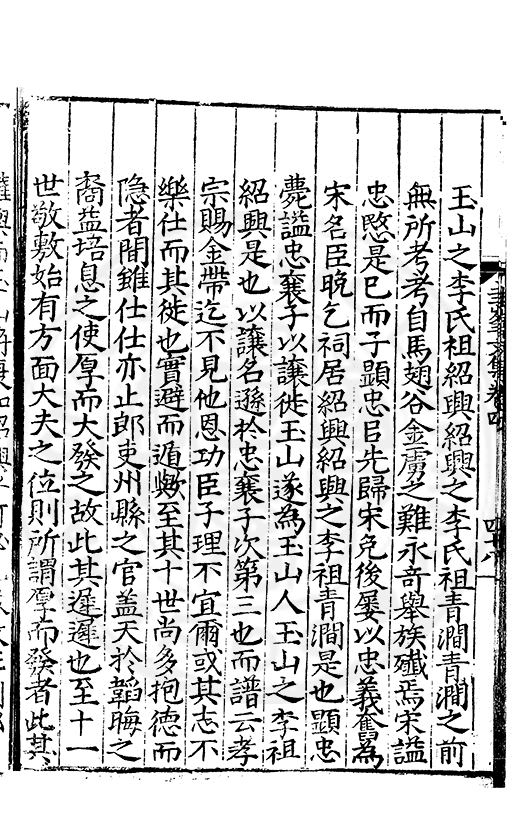 玉山之李氏祖紹興紹興之李氏祖青澗青澗之前
無所考考自馬翅谷金虜之難永竒舉族殲焉宋謚
忠愍是已而子顯忠臣先歸宋免後屢以忠義奮爲
宋名臣晚乞祠居紹興紹興之李祖青澗是也顯忠
薨謚忠襄子以讓徙玉山遂為玉山人玉山之李祖
紹興是也以讓名遜於忠襄子次第三也而譜云孝
宗賜金帶迄不見他恩功臣子理不宜爾或其志不
樂仕而其徙也實避而遁歟至其十世尚多抱德而
隐者間雖仕仕亦止郎吏州縣之官盖天於韜晦之
裔益培息之使厚而大發之故此其遲遲也至十一
世敬敷始有方面大夫之位則所謂厚而發者此其